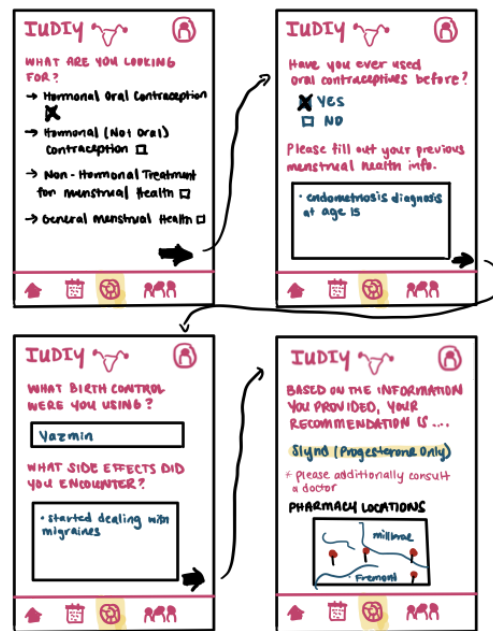 IUDIY
WHAT ARE YOU LOOKING
FOR?
→ Hormonal Oral Contraception
→ Hormonal (Not Oral)
contraception
→ Non-Hormonal Treatment
for menstrual Health
→ General menstrual Health
IUDIY
Have you ever used
oral contraceptives before?
YES
NO
Please fill out your previous
menstrual health info.
• endometriosis diagnosis
at age 15
IUDIY
WHAT BIRTH CONTROL
WERE YOU USING?
Yazmin
WHAT SIDE EFFECTS DID
YOU ENCOUNTER?
• started dealing with
migraines
IUDIY
BASED ON THE INFORMATION
YOU PROVIDED, YOUR
RECOMMENDATION IS ....
Slynd (Progesterone Only)
+ please additionally consult
a doctor
PHARMACY LOCATIONS
millbrae
Fremont